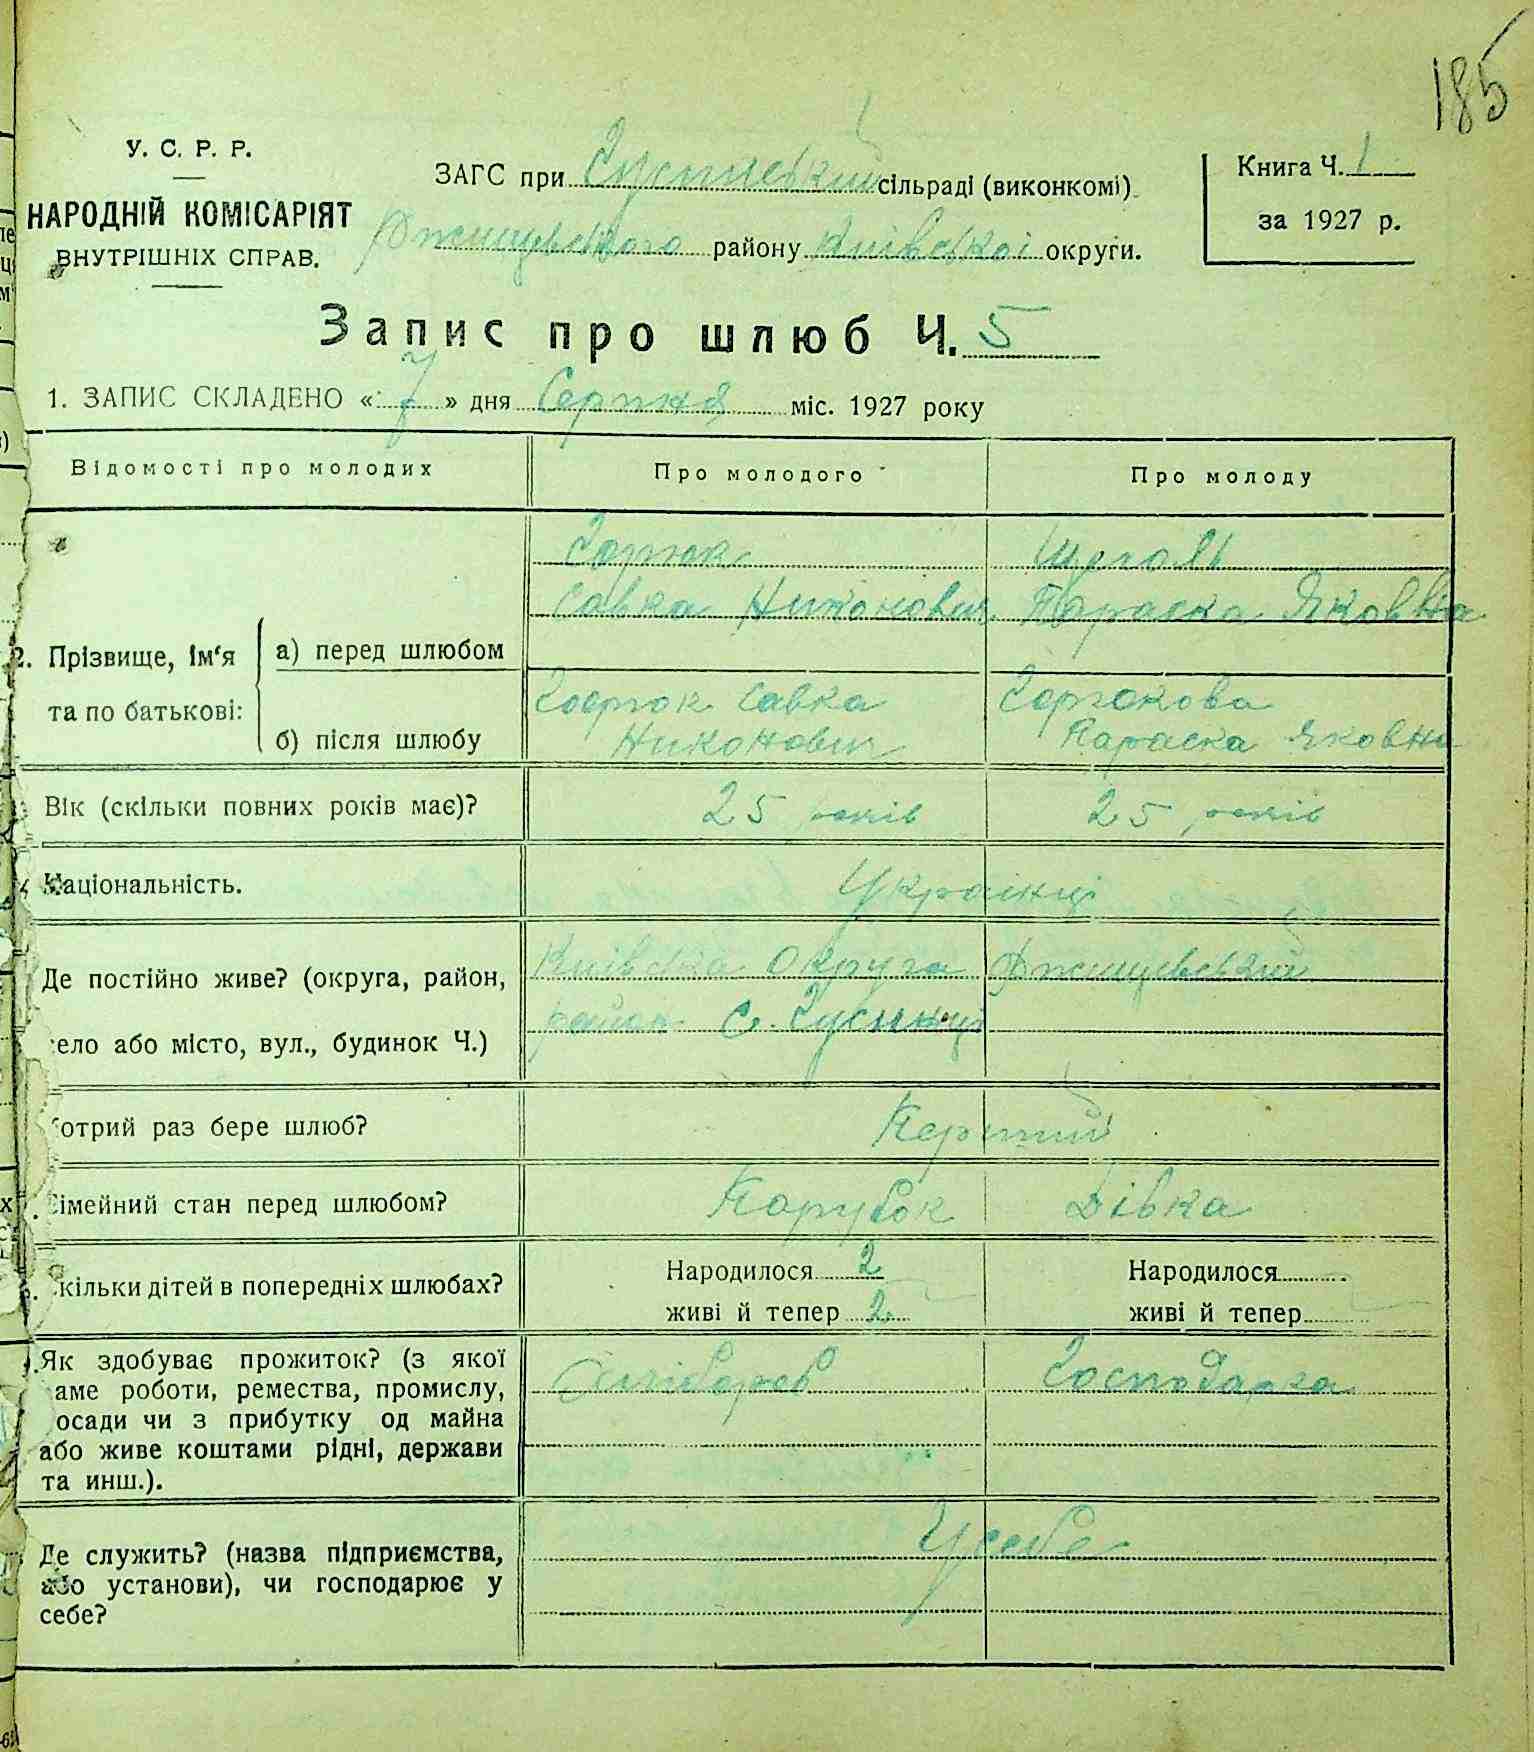 185
У. С. Р. Р.
НАРОДНІЙ КОМІСАРІЯТ
ВНУТРІШНІХ СПРАВ.
ЗАГС при сільраді (виконкомі)
Ржищевського району Київської округи.
Книга Ч. 1
за 1927 р.
Запис про шлюб Ч. 5
1. ЗАПИС СКЛАДЕНО «7» дня Серпня міс. 1927 року
Відомості про молодих
Про молодого
Про молоду
2. Прізвище, ім'я та по батькові:
а) перед шлюбом
Савка Никонович
Параска Яковна
б) після шлюбу
Савка
Никонович
Параска Яковна
Вік (скільки повних років має)?
25 років
25 років
Національність.
Українці
Де постійно живе? (округа, район,
село або місто, вул., будинок Ч.)
Київська округа Ржищевський
район с.
Котрий раз бере шлюб?
Перший
Сімейний стан перед шлюбом?
Парубок
Дівка
Скільки дітей в попередніх шлюбах?
Народилося 2
живі й тепер 2
Народилося
живі й тепер
Як здобуває прожиток? (з якої
саме роботи, ремества, промислу,
посади чи з прибутку од майна
або живе коштами рідні, держави
та инш.).
Хлібороб
Господарка
Де служить? (назва підприємства,
або установи), чи господарює у
себе?
У себе